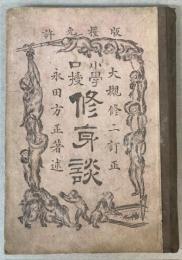 版權免許
大槻修二訂正
小學口授 修身談
永田方正著述